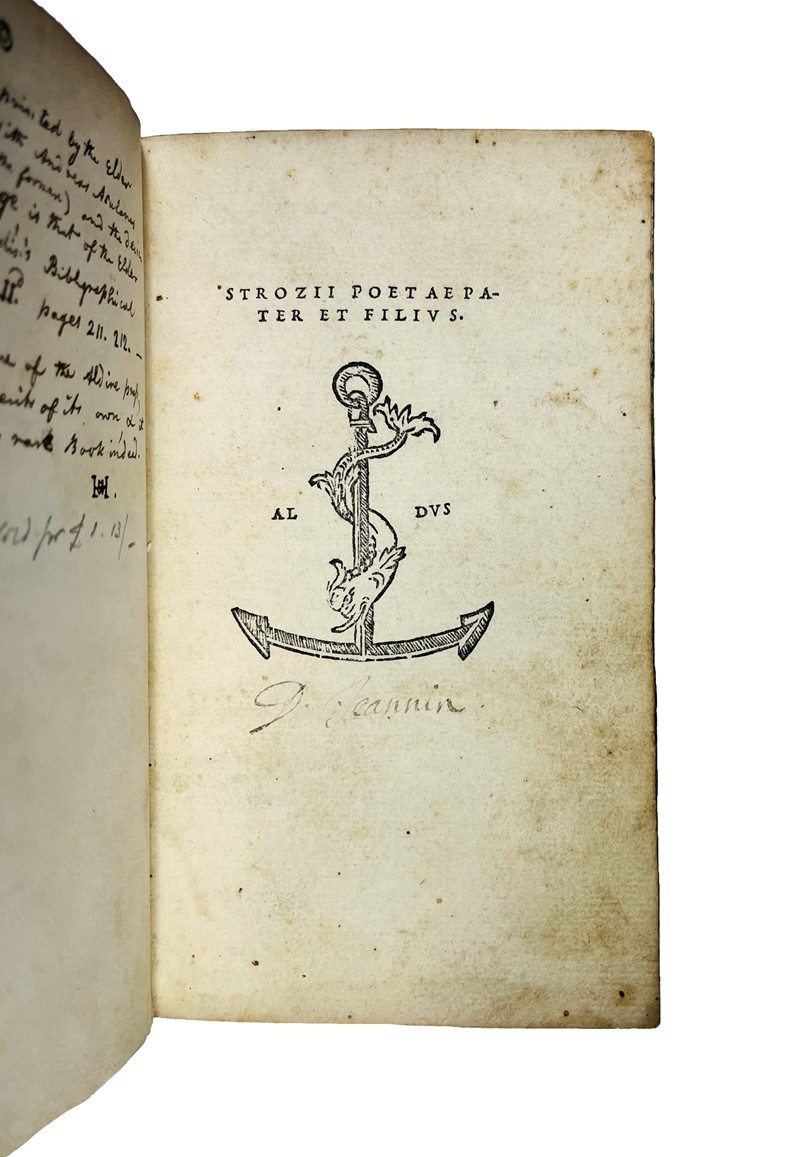 printed by the Elder
with Andreas Asulanus
the former) and the
is that of the Elder
Bibliographical
II. pages 211. 212. —
of the Aldine press
of its own & it
rare Book indeed.
H.
for £ 1. 13/-
STROZII POETAE PA-
TER ET FILIVS.
AL DVS
D. Jeannin